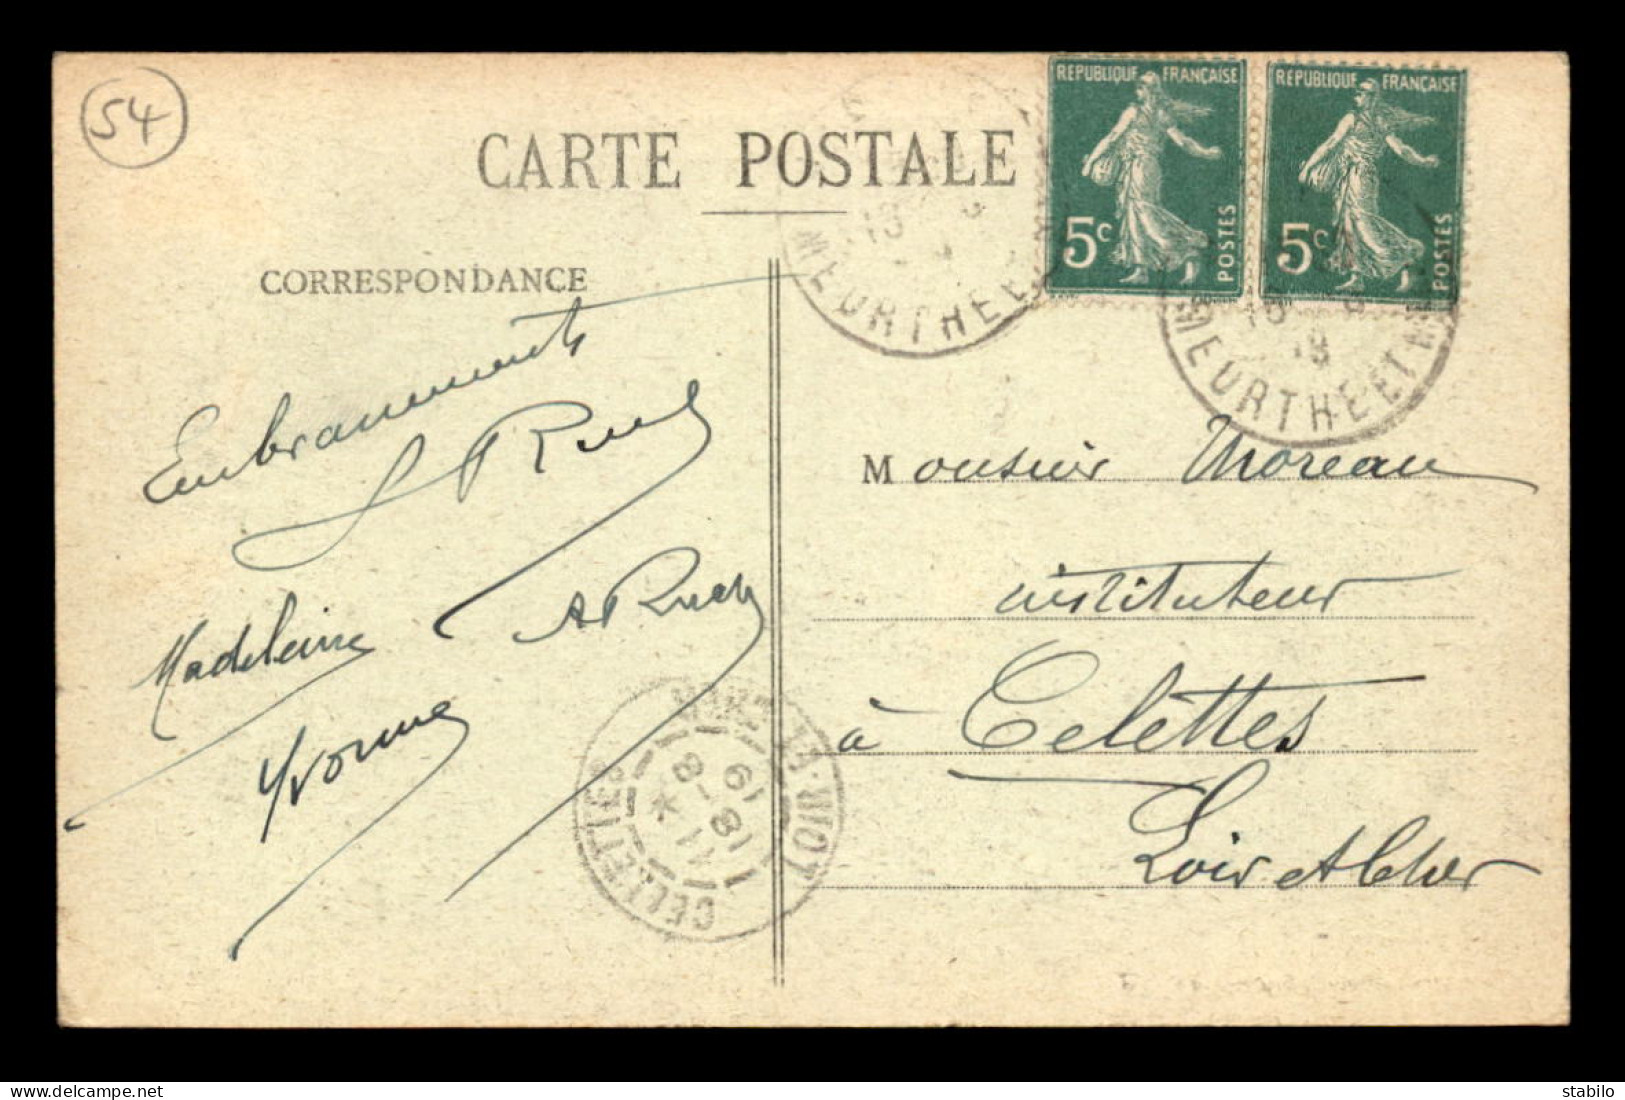 54
CARTE POSTALE
CORRESPONDANCE
REPUBLIQUE FRANÇAISE
5c
POSTES
REPUBLIQUE FRANÇAISE
5c
POSTES
MEURTHE E
MEURTHE ET M
Embrassements
Madeleine
Yvonne
Monsieur Moreau
instituteur
à Celettes
Loir et Cher
CELLETTES
LOIR-ET-CHER
11 *
18 -8
19
stabilo
www.delcampe.net